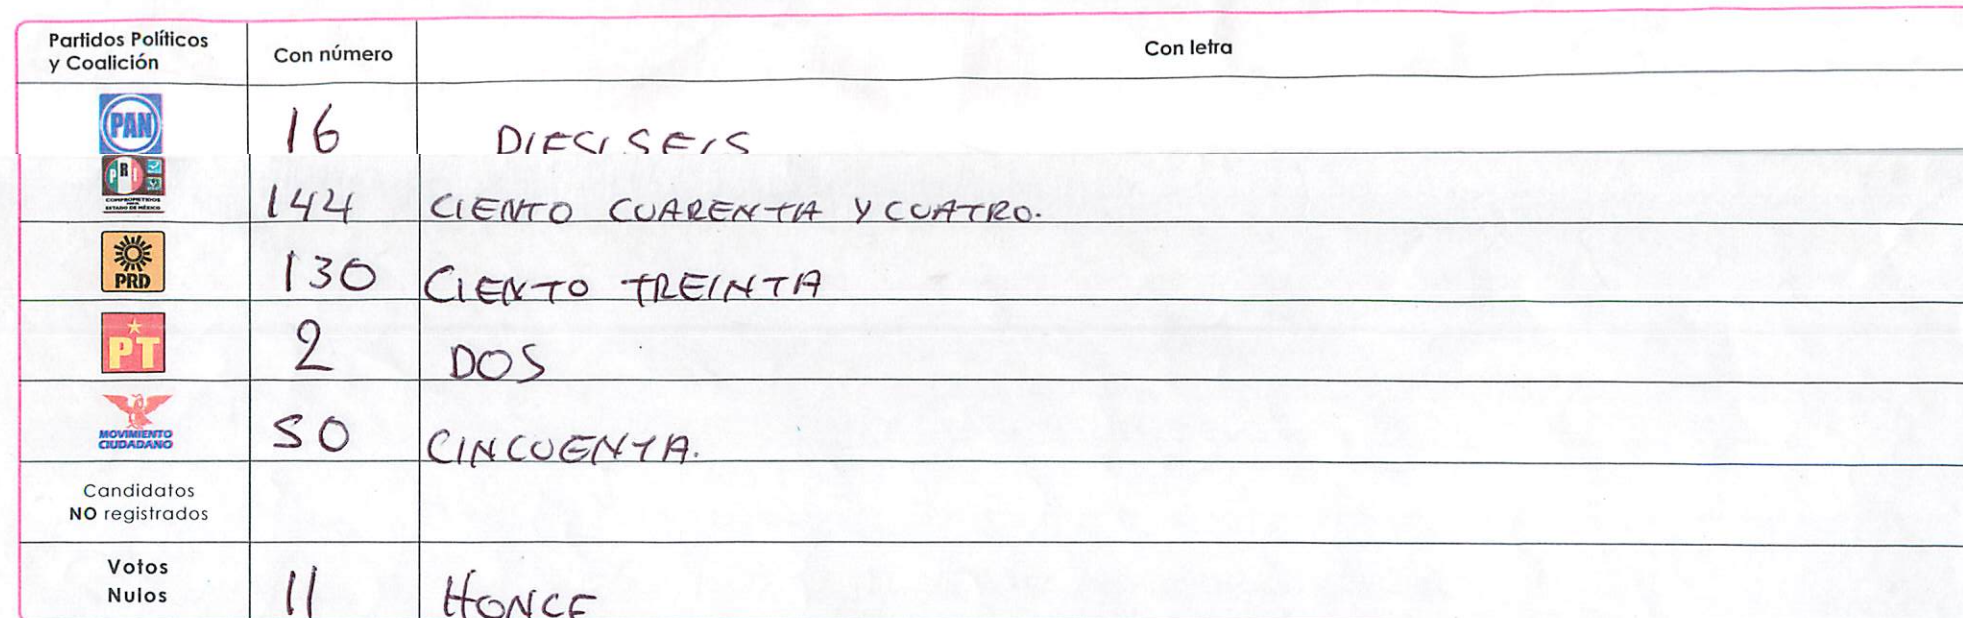 Partidos Políticos
y Coalición
Con número
Con letra
PAN
16
DIECISEIS
PRI
COMPROMETIDOS
ESTADO DE MÉXICO
144
CIENTO CUARENTA Y CUATRO.
PRD
130
CIENTO TREINTA
PT
2
DOS
MOVIMIENTO
CIUDADANO
50
CINCUENTA.
Candidatos
NO registrados
Votos
Nulos
11
HONCE